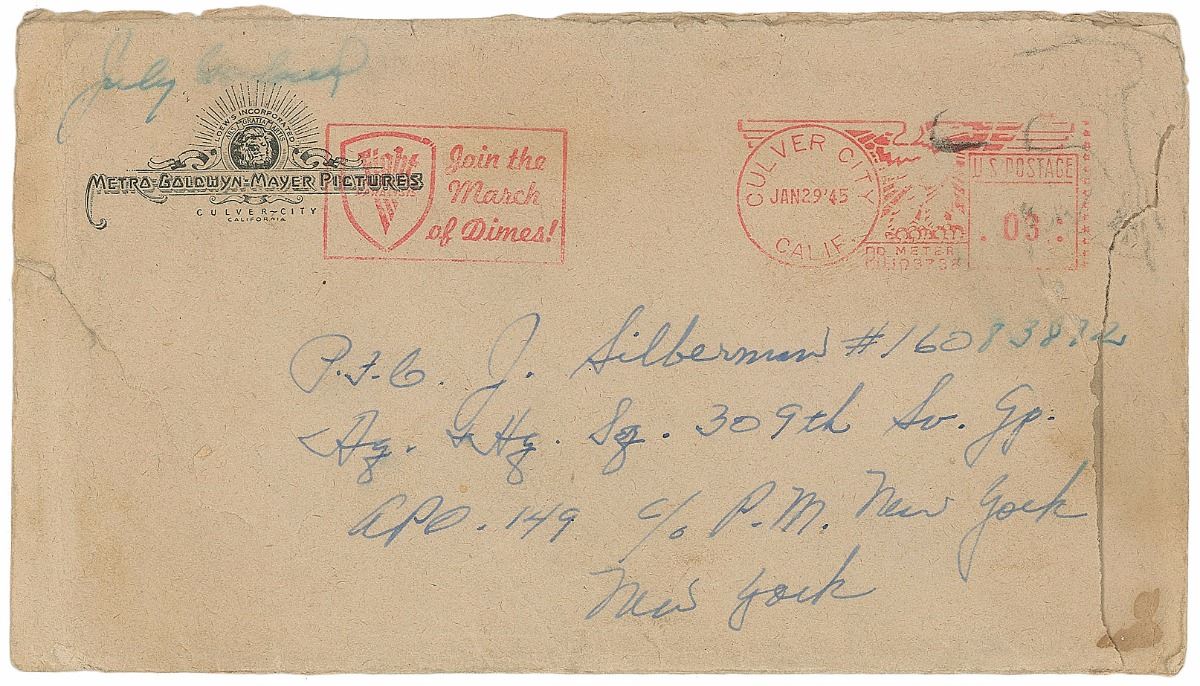 Judy Garland
LOEW'S INCORPORATED
METRO-GOLDWYN-MAYER PICTURES
CULVER-CITY
CALIFORNIA
Fight
Join the
March
of Dimes!
CULVER CITY
JAN29'45
CALIF.
U.S.POSTAGE
.03:
METER
P.F.C. J. Silberman #16083872
Hq. & Hq. Sq. 309th Sv. Gp.
APO. 149 c/o P.M. New York
New York